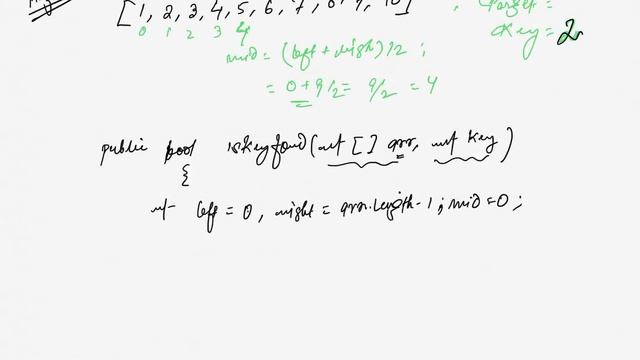 [1, 2, 3, 4, 5, 6, 7, 8, 9, 10] , Target =
0 1 2 3 4 Key = 2
mid = (left + right)/2 ;
= 0+9/2 = 9/2 = 4
public bool isKeyfound(int [] arr, int Key)
{
int left = 0, right = arr.length-1; mid = 0;